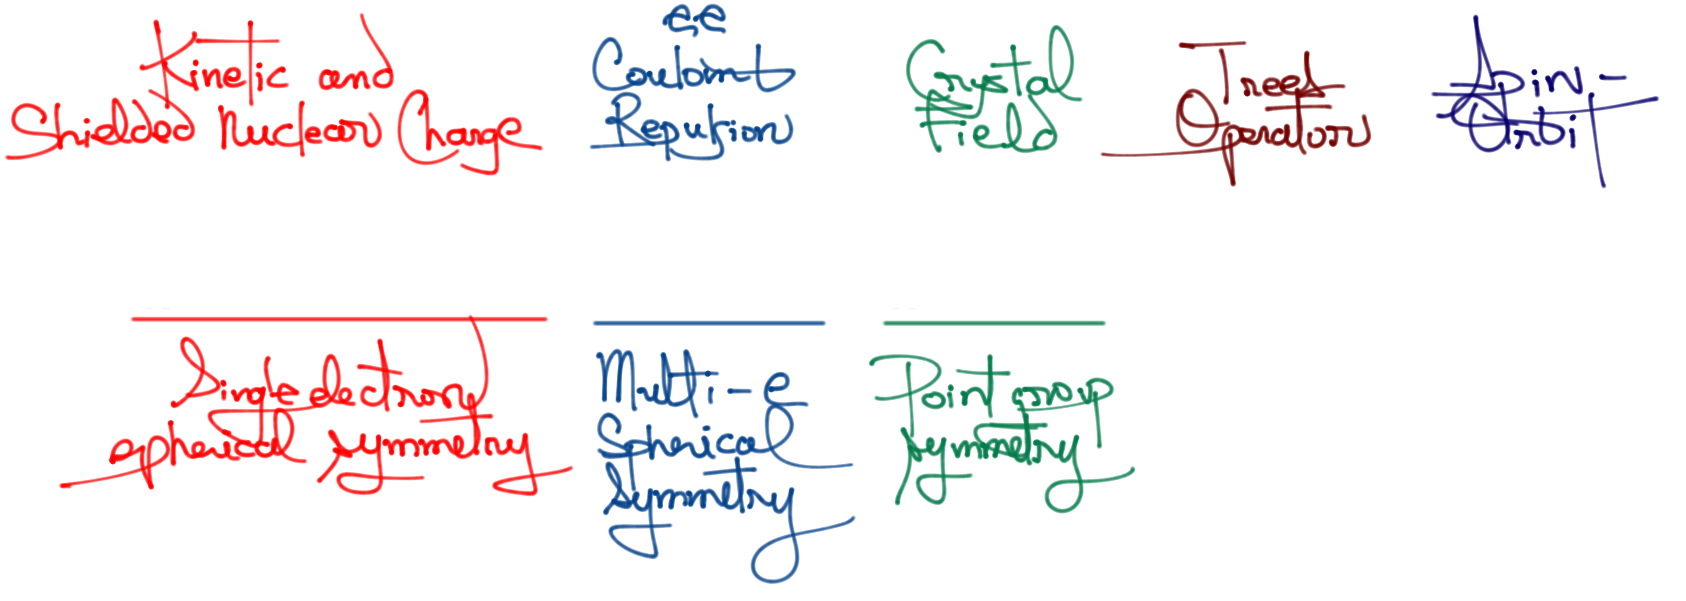 Kinetic and
Shielded Nuclear Charge
e.e
Coulomb
Repulsion
Crystal
Field
Trees
Operator
Spin-
Orbit
Single electrony
spherical symmetry
Multi-e
Spherical
Symmetry
Point group
symmetry